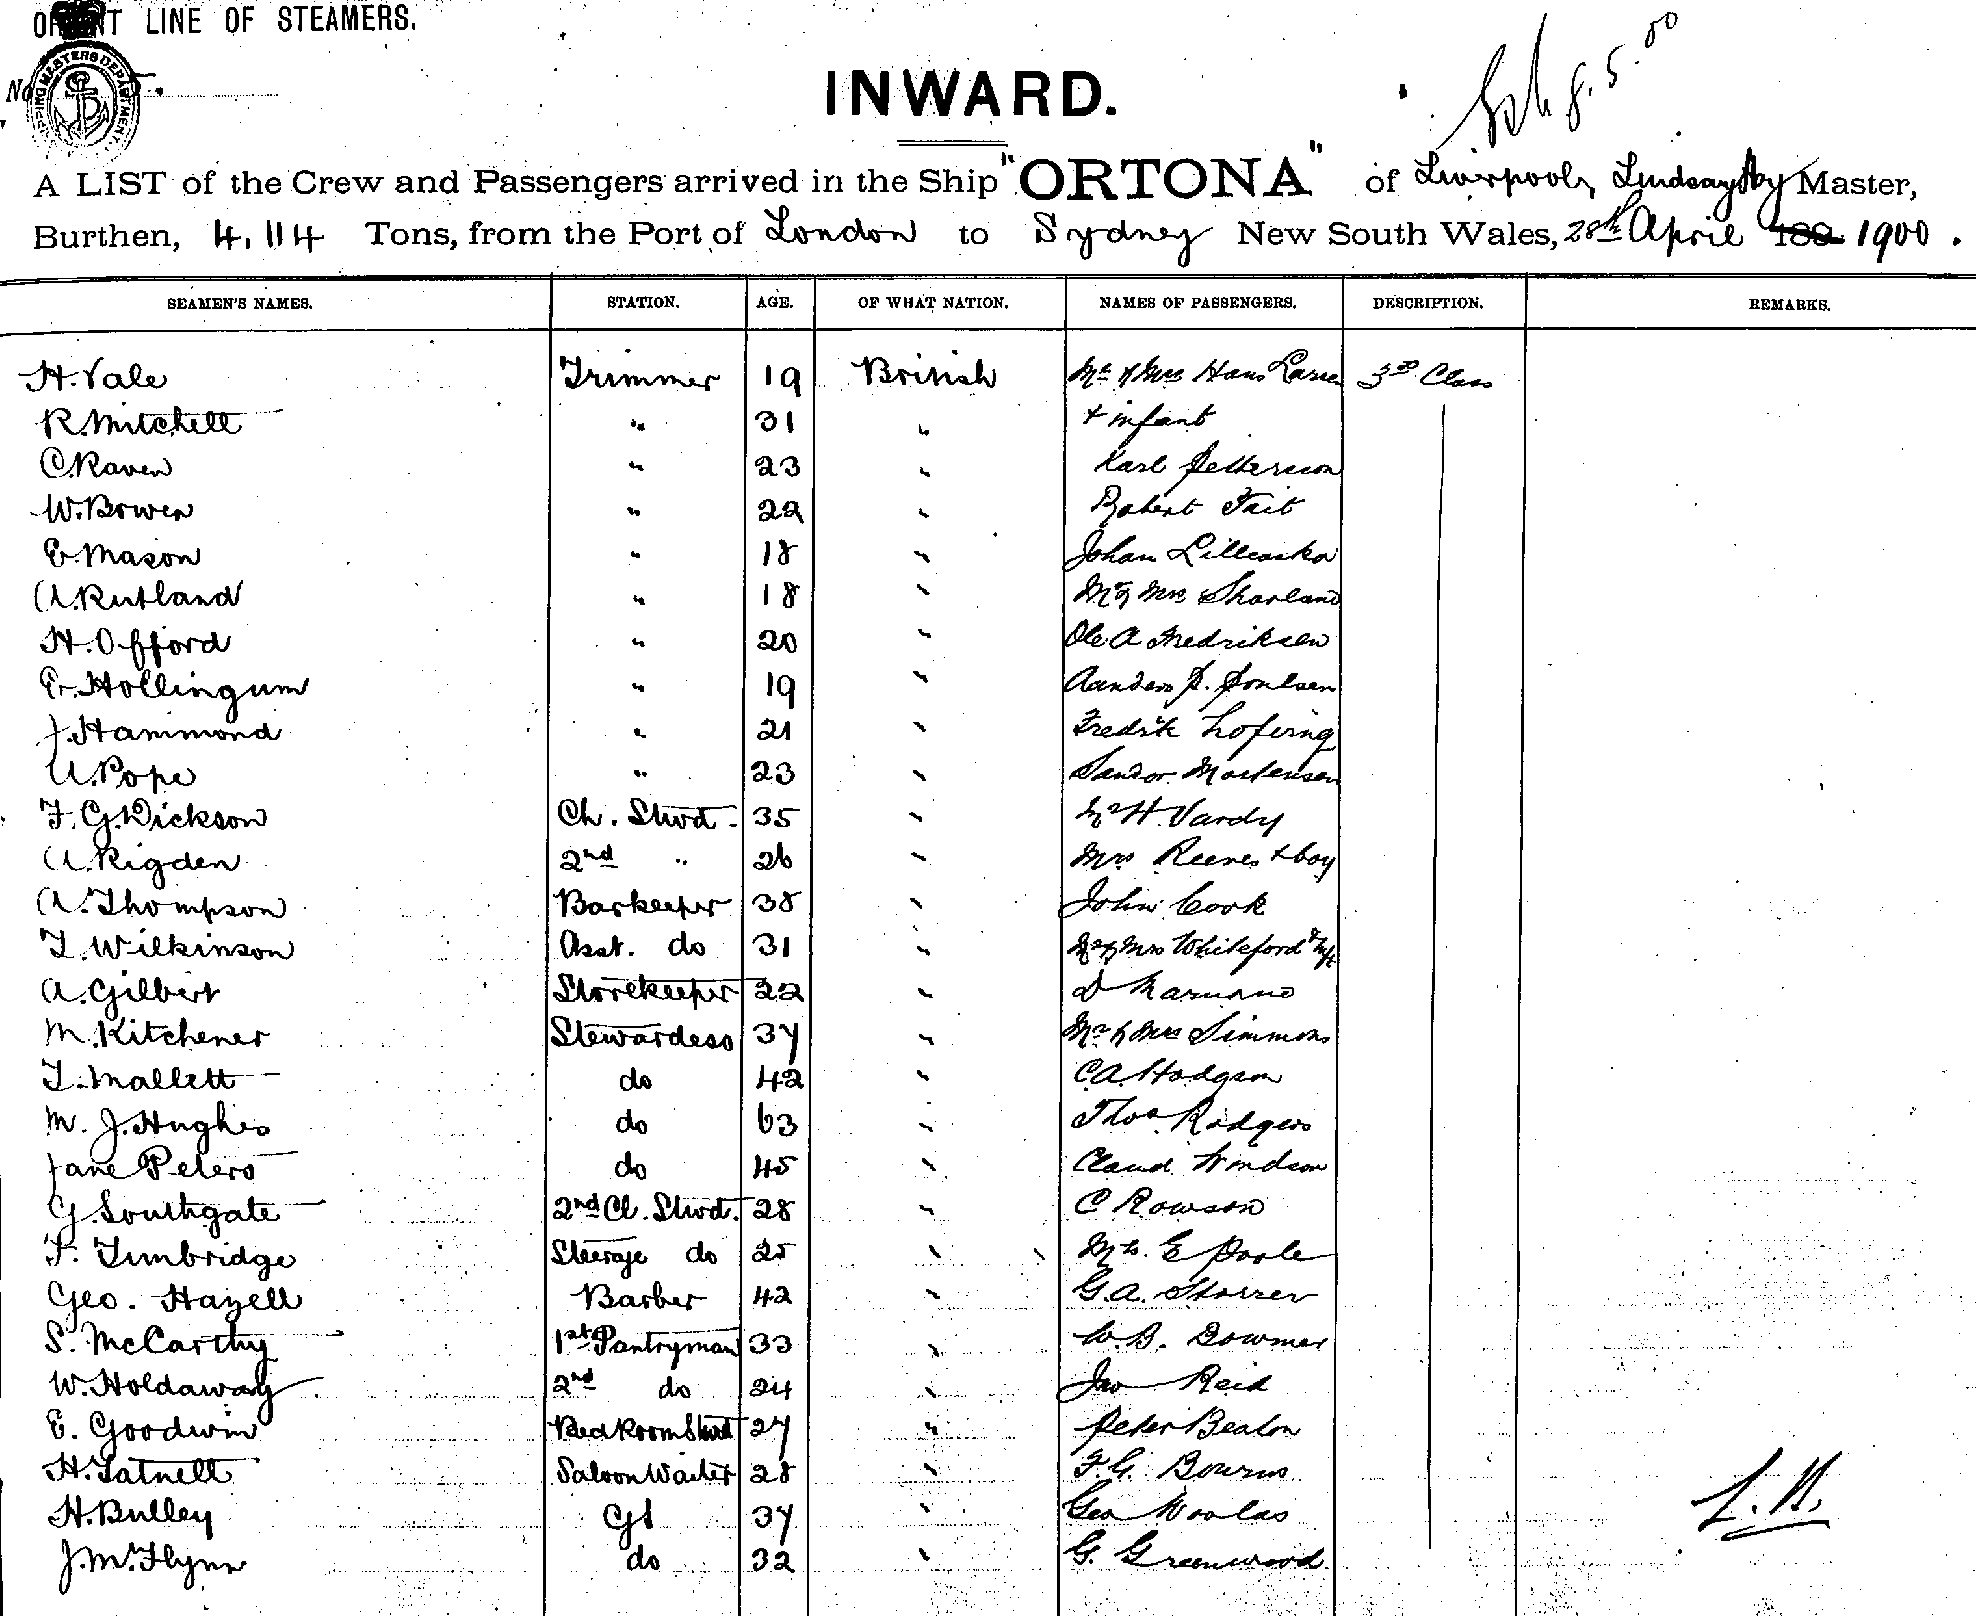 ORIENT LINE OF STEAMERS.
No
INWARD.
8.5.00
A LIST of the Crew and Passengers arrived in the Ship "ORTONA" of Liverpool, Master,
Burthen, 4,114 Tons, from the Port of London to Sydney New South Wales, 28th April 189 1900.
SEAMEN'S NAMES. STATION. AGE. OF WHAT NATION. NAMES OF PASSENGERS. DESCRIPTION. REMARKS.
H. Vale Trimmer 19 British Mr & Mrs Hans 3rd Class
R. Mitchell " 31 " + infant
C. Raven " 23 " Karl Petterson
W. Bowen " 22 " Robert Tait
E. Mason " 18 " Johan
A. Rutland " 18 " Mr & Mrs Sharland
H. Offord " 20 " Ole A Fredriksen
E. Hollingum " 19 " Aanders P. Poulsen
J. Hammond " 21 " Fredrik
A. Pope " 23 " Sandor Mortensen
F. G. Dickson Ch. Stwd. 35 " Mr H. Vardy
A. Rigden 2nd " 26 " Mrs Reeves + boy
A. Thompson Barkeeper 38 " John Cook
T. Wilkinson Asst. do 31 " Mr & Mrs Whiteford & inft
A. Gilbert Storekeeper 22 " D
M. Kitchener Stewardess 37 " Mr & Mrs Simmons
T. Mallett do 42 " C.A. Hodgson
M. J. Hughes do 63 " Thos Rodgers
Jane Peters do 45 " Claud Windsor
G. Southgate 2nd Cl. Stwd. 28 " C Rowson
F. Timbridge Steerage do 25 " Mrs. E Poole
Geo. Hazell Barber 42 " G.A. Storrer
S. McCarthy 1st Pantryman 33 " W.B. Bowmer
W. Holdaway 2nd do 24 " Jno Reid
E. Goodwin Bed Room Stwd 27 " Peter Beaton
H. Tatnell Saloon Waiter 28 " F.G. Bourns
H. Bulley Gl 37 " Geo Woolas
J. McFlynn do 32 " G. Greenwood